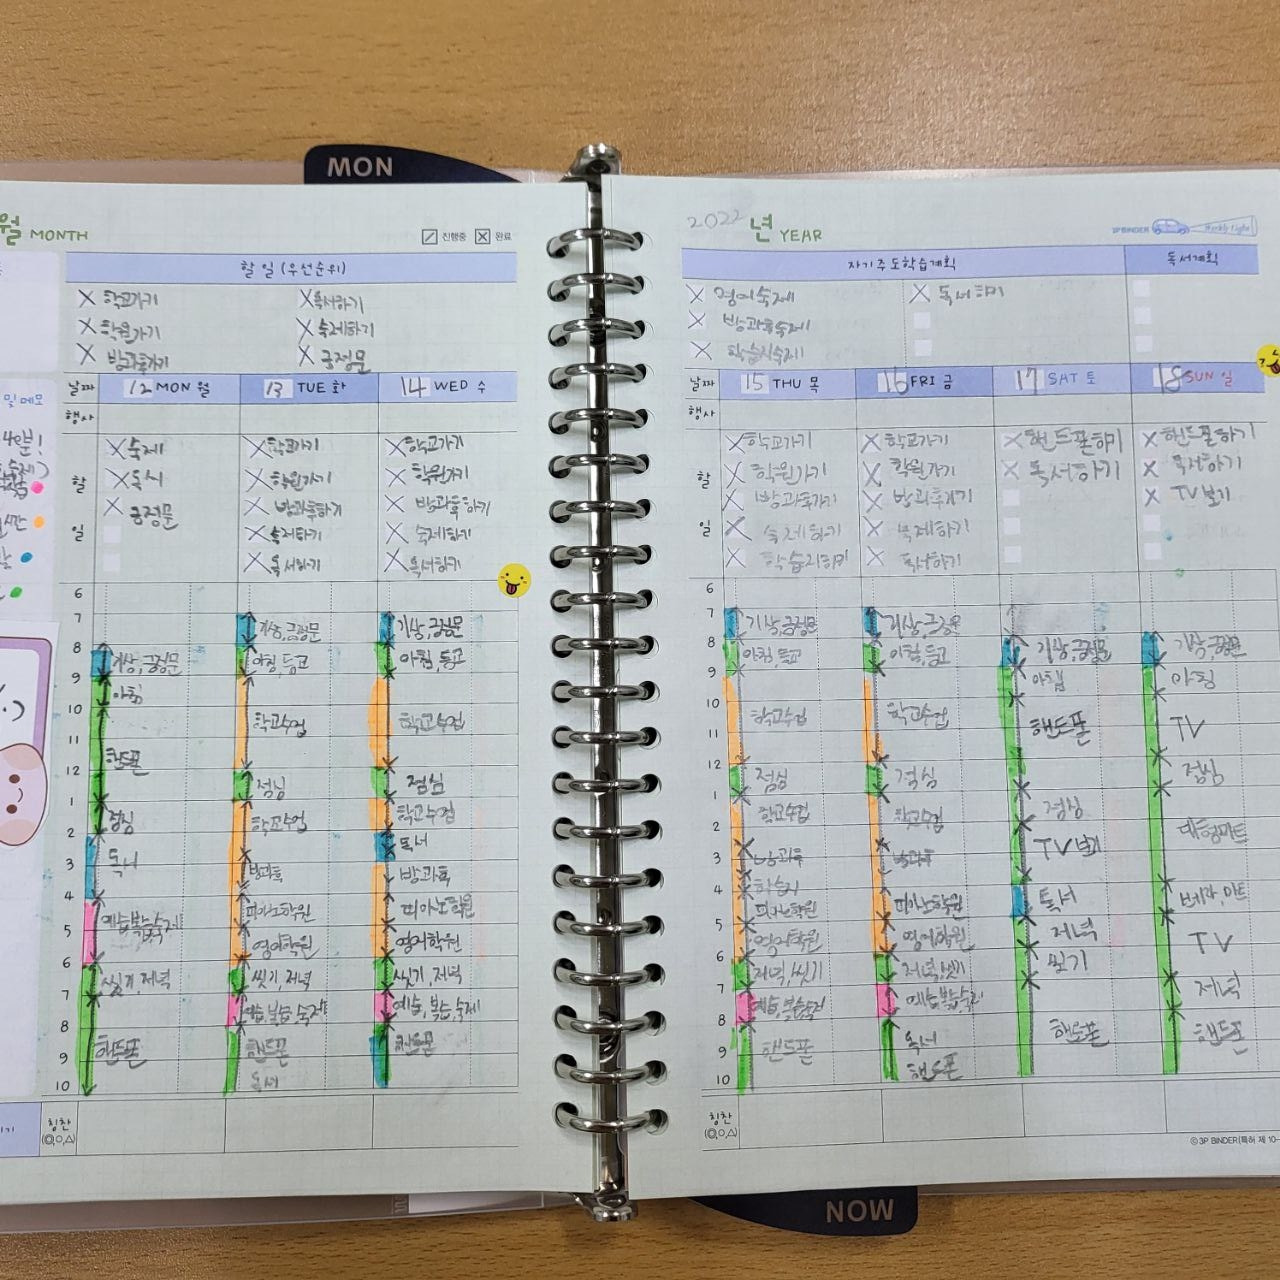 MON
월 MONTH
진행중 완료
할 일 (우선순위)
학교가기 독서하기
학원가기 숙제하기
방과후가기 긍정문
날짜 12 MON 월 13 TUE 화 14 WED 수
행사
및 메모
할 일
숙제
독서
긍정문
학교가기
학원가기
방과후하기
숙제하기
독서하기
학교가기
학원가기
방과후하기
숙제하기
독서하기
6
7
8
9
10
11
12
1
2
3
4
5
6
7
8
9
10
기상, 긍정문
아침
핸드폰
점심
독서
예습복습숙제
씻기, 저녁
핸드폰
기상, 긍정문
아침, 등교
학교수업
점심
학교수업
방과후
피아노학원
영어학원
씻기, 저녁
예습, 복습, 숙제
핸드폰
독서
기상, 긍정문
아침, 등교
학교수업
점심
학교수업
독서
방과후
피아노학원
영어학원
씻기, 저녁
예습, 복습, 숙제
핸드폰
칭찬
(◎,○,△)
2022 년 YEAR
3P BINDER Weekly Light
자기주도학습계획 독서계획
영어숙제 독서하기
방과후숙제
학습지숙제
날짜 15 THU 목 16 FRI 금 17 SAT 토 18 SUN 일
행사
할 일
학교가기
학원가기
방과후가기
숙제하기
학습지하기
학교가기
학원가기
방과후가기
숙제하기
독서하기
핸드폰하기
독서하기
핸드폰하기
독서하기
TV보기
6
7
8
9
10
11
12
1
2
3
4
5
6
7
8
9
10
기상, 긍정문
아침, 등교
학교수업
점심
학교수업
방과후
학습지
피아노학원
영어학원
저녁, 씻기
예습, 복습숙제
핸드폰
기상, 긍정문
아침, 등교
학교수업
점심
학교수업
방과후
피아노학원
영어학원
저녁, 씻기
예습복습숙제
독서
핸드폰
기상, 긍정문
아침
핸드폰
점심
TV보기
독서
저녁
씻기
핸드폰
기상, 긍정문
아침
TV
점심
TV
저녁
핸드폰
칭찬
(◎,○,△)
ⓒ 3P BINDER(특허 제 10-
NOW